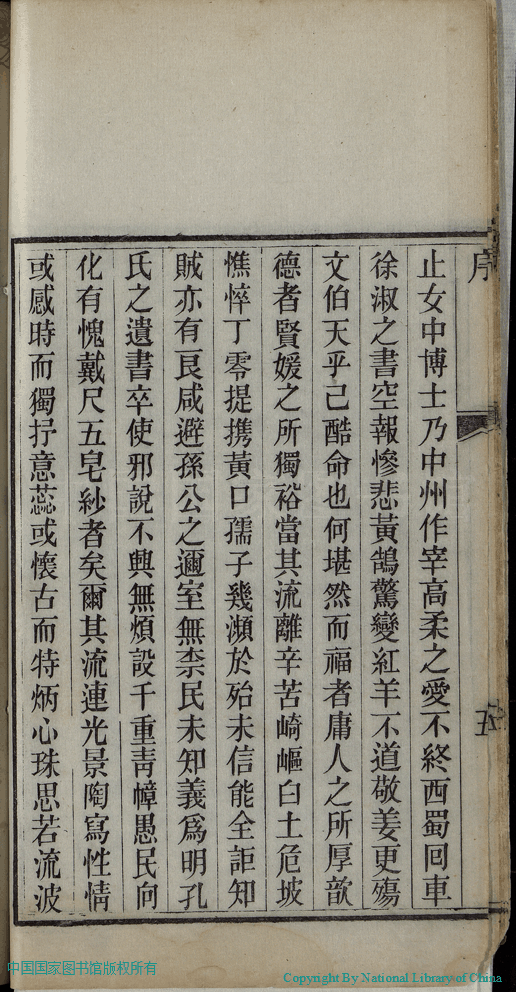 序
五
止女中博士乃中州作宰高柔之愛不終西蜀回車
徐淑之書空報慘悲黃鵠驚變紅羊不道敬姜更殤
文伯天乎己酷命也何堪然而福者庸人之所厚歆
德者賢媛之所獨裕當其流離辛苦崎嶇白土危坡
憔悴丁零提携黃口孺子幾瀕於殆未信能全詎知
賊亦有良咸避孫公之邇室無柰民未知義爲明孔
氏之遺書卒使邪說不興無煩設千重靑幛愚民向
化有愧戴尺五皂紗者矣爾其流連光景陶寫性情
或感時而獨抒意蕊或懷古而特炳心珠思若流波
中国国家图书馆版权所有
Copyright By National Library of China